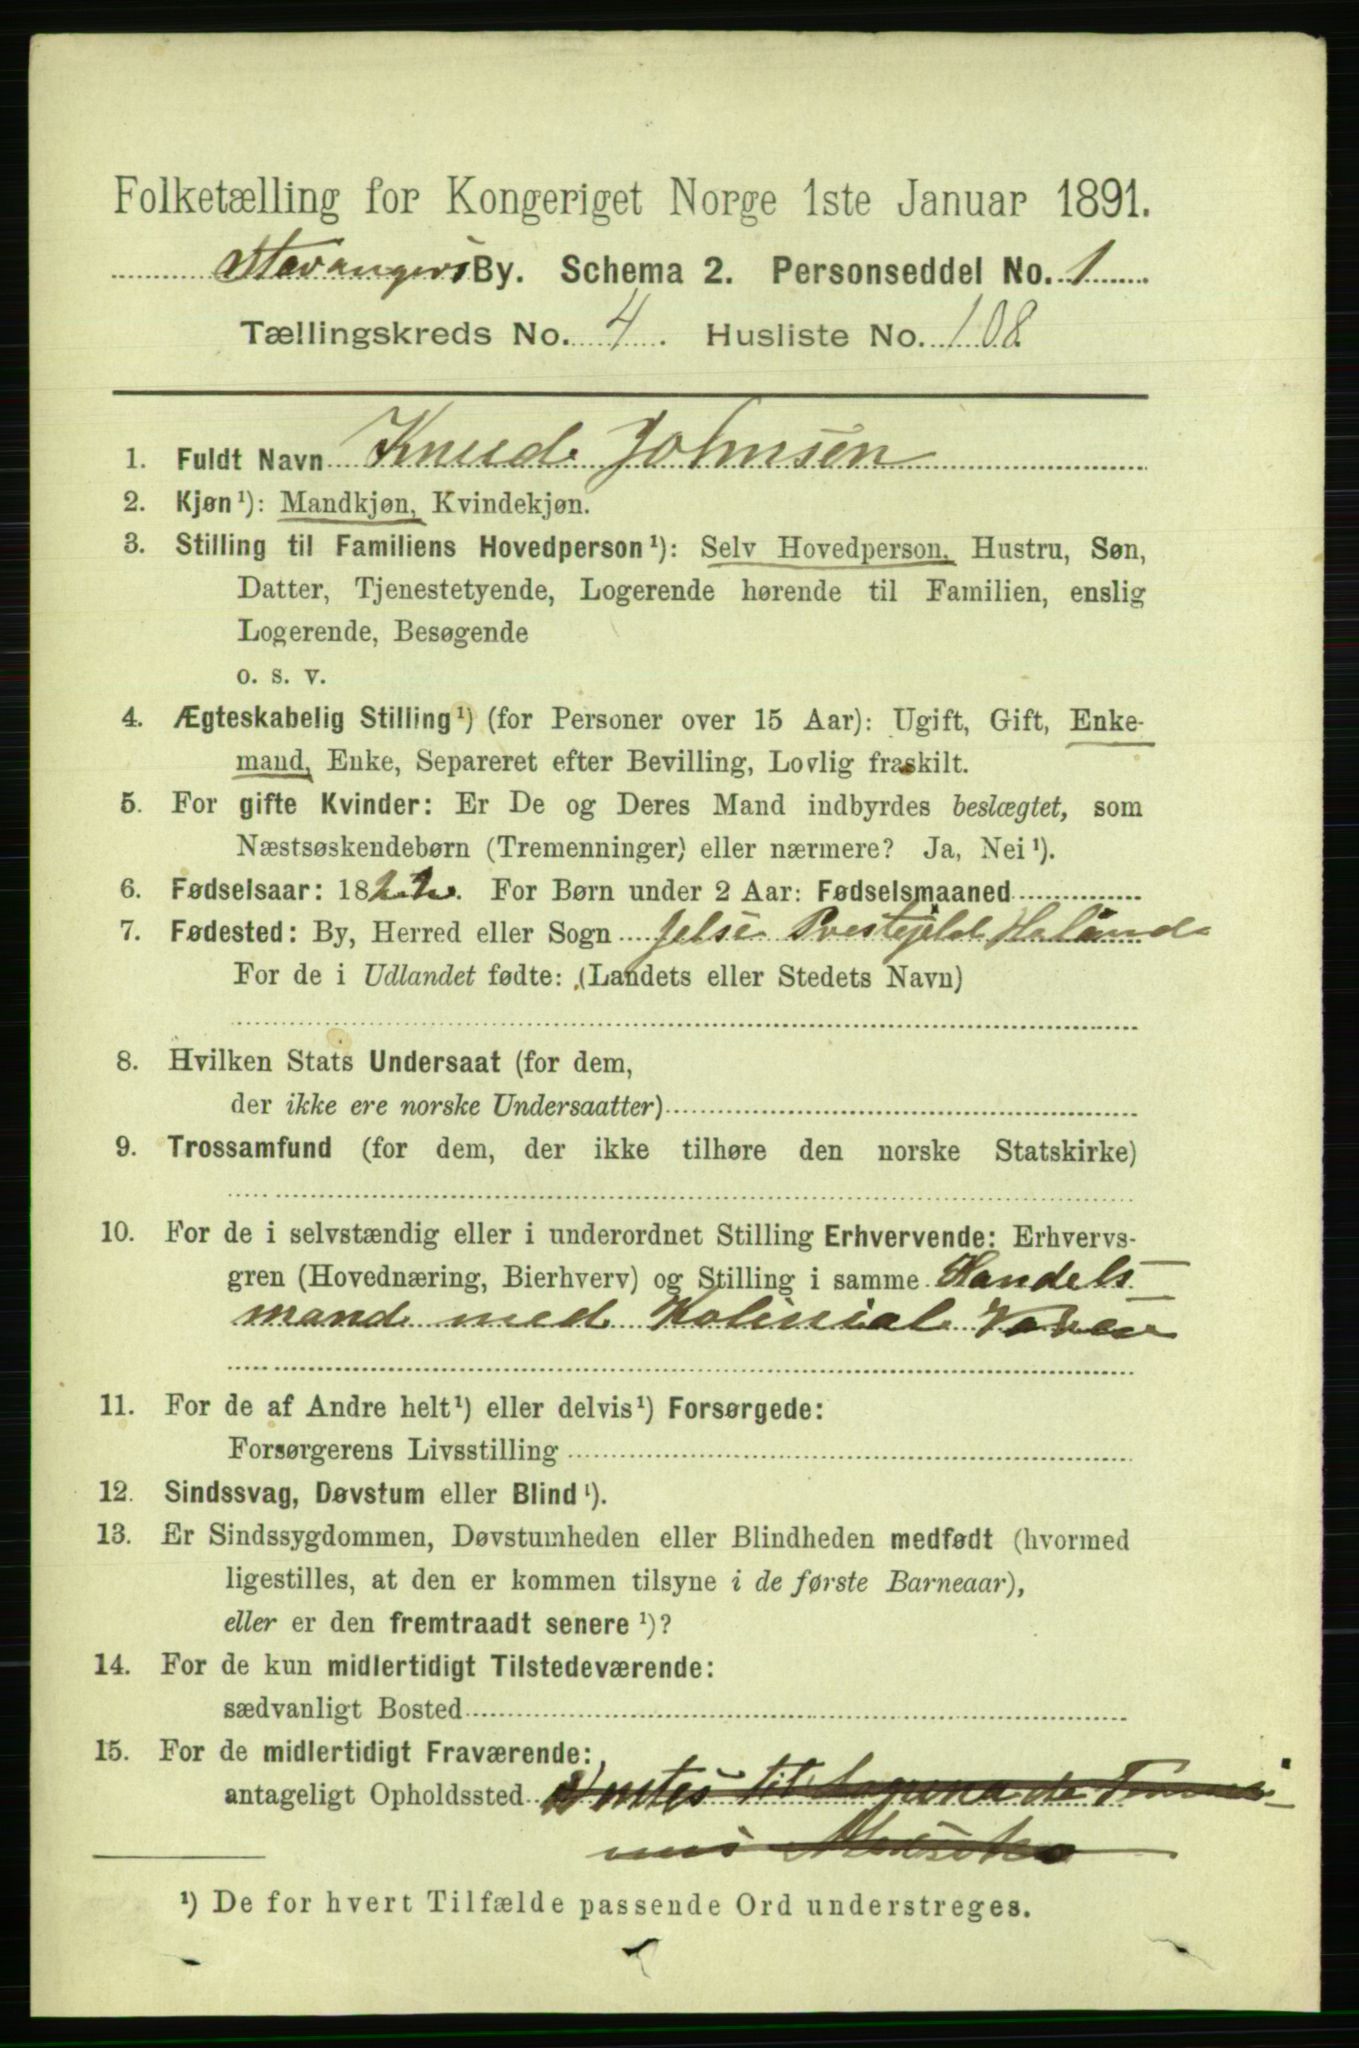 Folketælling for Kongeriget Norge 1ste Januar 1891.
Stavangers By. Schema 2. Personseddel No. 1
Tællingskreds No. 4. Husliste No. 108.
1. Fuldt Navn Knud Johnsen
2. Kjøn¹): Mandkjøn, Kvindekjøn.
3. Stilling til Familiens Hovedperson¹): Selv Hovedperson, Hustru, Søn,
Datter, Tjenestetyende, Logerende hørende til Familien, enslig
Logerende, Besøgende
o. s. v.
4. Ægteskabelig Stilling¹) (for Personer over 15 Aar): Ugift, Gift, Enke-
mand, Enke, Separeret efter Bevilling, Lovlig fraskilt.
5. For gifte Kvinder: Er De og Deres Mand indbyrdes beslægtet, som
Næstsøskendebørn (Tremenninger) eller nærmere? Ja, Nei¹).
6. Fødselsaar: 1822. For Børn under 2 Aar: Fødselsmaaned
7. Fødested: By, Herred eller Sogn Jelse Prestejeld Haland
For de i Udlandet fødte: (Landets eller Stedets Navn)
8. Hvilken Stats Undersaat (for dem,
der ikke ere norske Undersaatter)
9. Trossamfund (for dem, der ikke tilhøre den norske Statskirke)
10. For de i selvstændig eller i underordnet Stilling Erhvervende: Erhvervs-
gren (Hovednæring, Bierhverv) og Stilling i samme Handels
mand med Kolinial Varer
11. For de af Andre helt¹) eller delvis¹) Forsørgede:
Forsørgerens Livsstilling
12. Sindssvag, Døvstum eller Blind¹).
13. Er Sindssygdommen, Døvstumheden eller Blindheden medfødt (hvormed
ligestilles, at den er kommen tilsyne i de første Barneaar),
eller er den fremtraadt senere¹)?
14. For de kun midlertidigt Tilstedeværende:
sædvanligt Bosted
15. For de midlertidigt Fraværende:
antageligt Opholdssted Ventes til Laguna de
¹) De for hvert Tilfælde passende Ord understreges.